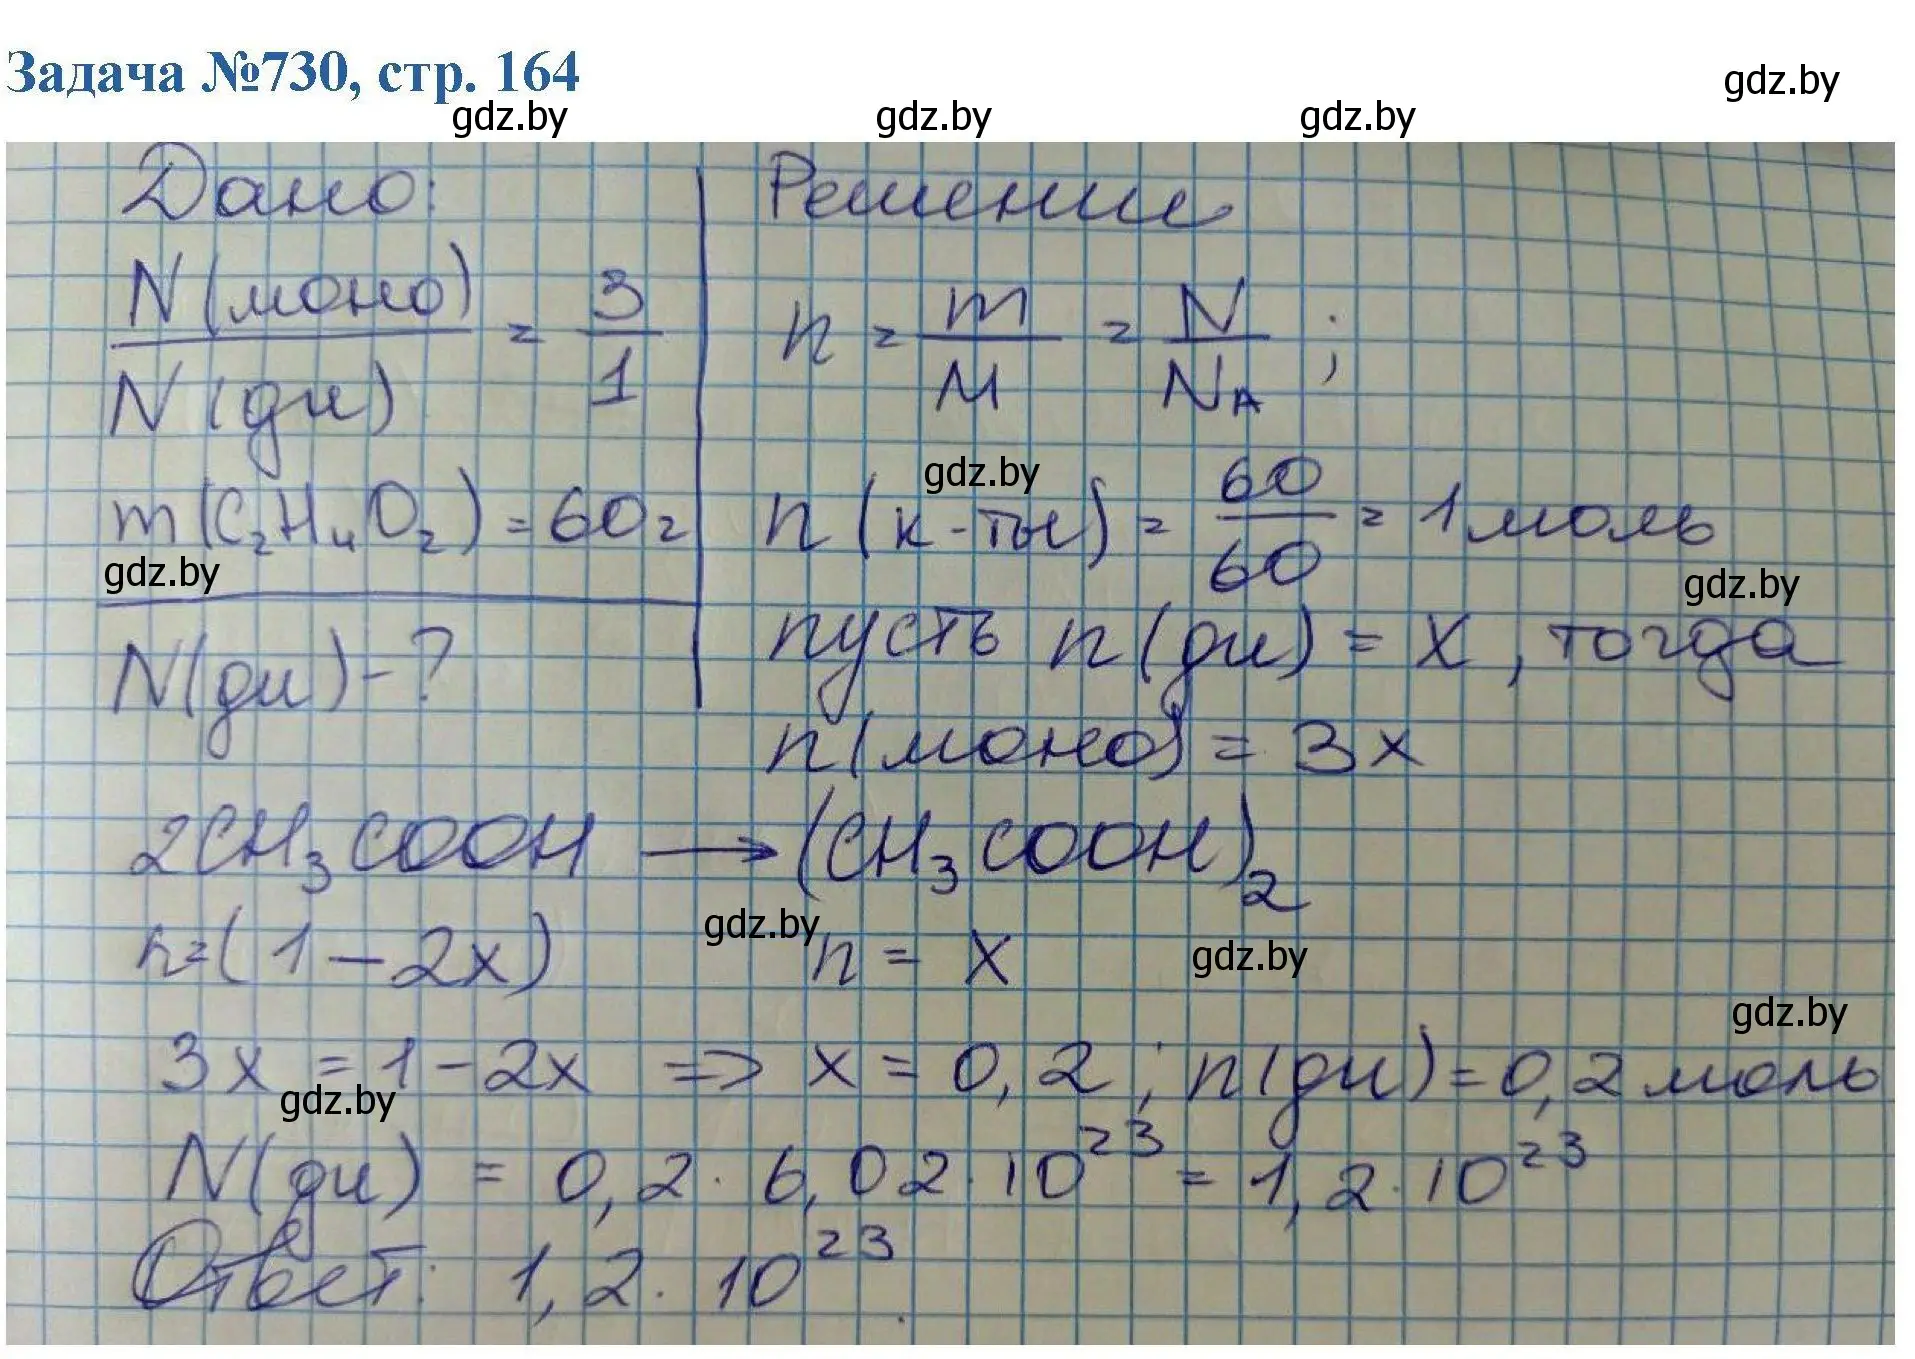 Задача №730, стр. 164
gdz.by
gdz.by gdz.by gdz.by
Дано:
N(моно)/N(ди) = 3/1
m(C₂H₄O₂) = 60г
gdz.by
N(ди) - ?
Решение
n = m/M = N/N_A ;
gdz.by
n(к-ты) = 60/60 = 1 моль
gdz.by
пусть n(ди) = x, тогда
n(моно) = 3x
2CH₃COOH → (CH₃COOH)₂
gdz.by
n=(1-2x) n = x
gdz.by
gdz.by
3x = 1-2x => x = 0,2 ; n(ди) = 0,2 моль
gdz.by
N(ди) = 0,2 · 6,02 · 10²³ = 1,2 · 10²³
Ответ: 1,2 · 10²³.